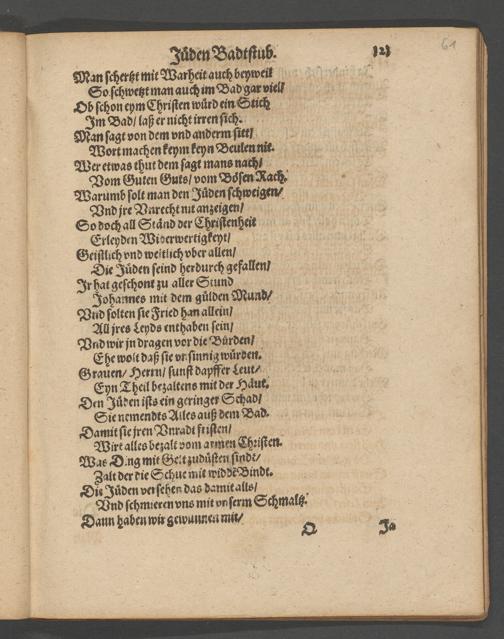 Jüden Badtstub. 121
61
Man schertzt mit Warheit auch beyweil
So schwetzt man auch im Bad gar viel/
Ob schon eym Christen würd ein Stich
Im Bad/ laß er nicht irren sich.
Man sagt von dem vnd anderm sitt/
Wort machen keym keyn Beulen nit.
Wer etwas thut dem sagt mans nach/
Vom Guten Guts/ vom Bösen Rach.
Warumb solt man den Jüden schweigen/
Vnd jre Vnrecht nit anzeigen/
So doch all Ständ der Christenheit
Erleyden Widerwertigkeyt/
Geistlich vnd weltlich vber allen/
Die Jüden seind herdurch gefallen/
Jr hat geschont zu aller Stund
Johannes mit dem gülden Mund/
Vnd solten sie Fried han allein/
All jres Leyds enthaben sein/
Vnd wir jn dragen vor die Bürden/
Ehe wolt daß sie vnsinnig würden.
Grauen/ Herrn/ sunst dapffer Leut/
Eyn Theil bezaltens mit der Häut.
Den Jüden ists ein geringer Schad/
Sie nemendts Alles auß dem Bad.
Damit sie jren Vnradt fristen/
Wirt alles bezalt vom armen Christen.
Was Ding mit Gelt zudüsten sindt/
Zalt der die Schue mit widdē Bindt.
Die Jüden versehen das damit alls/
Vnd schmieren vns mit vnserm Schmaltz.
Dann haben wir gewunnen mit/
Q Ja